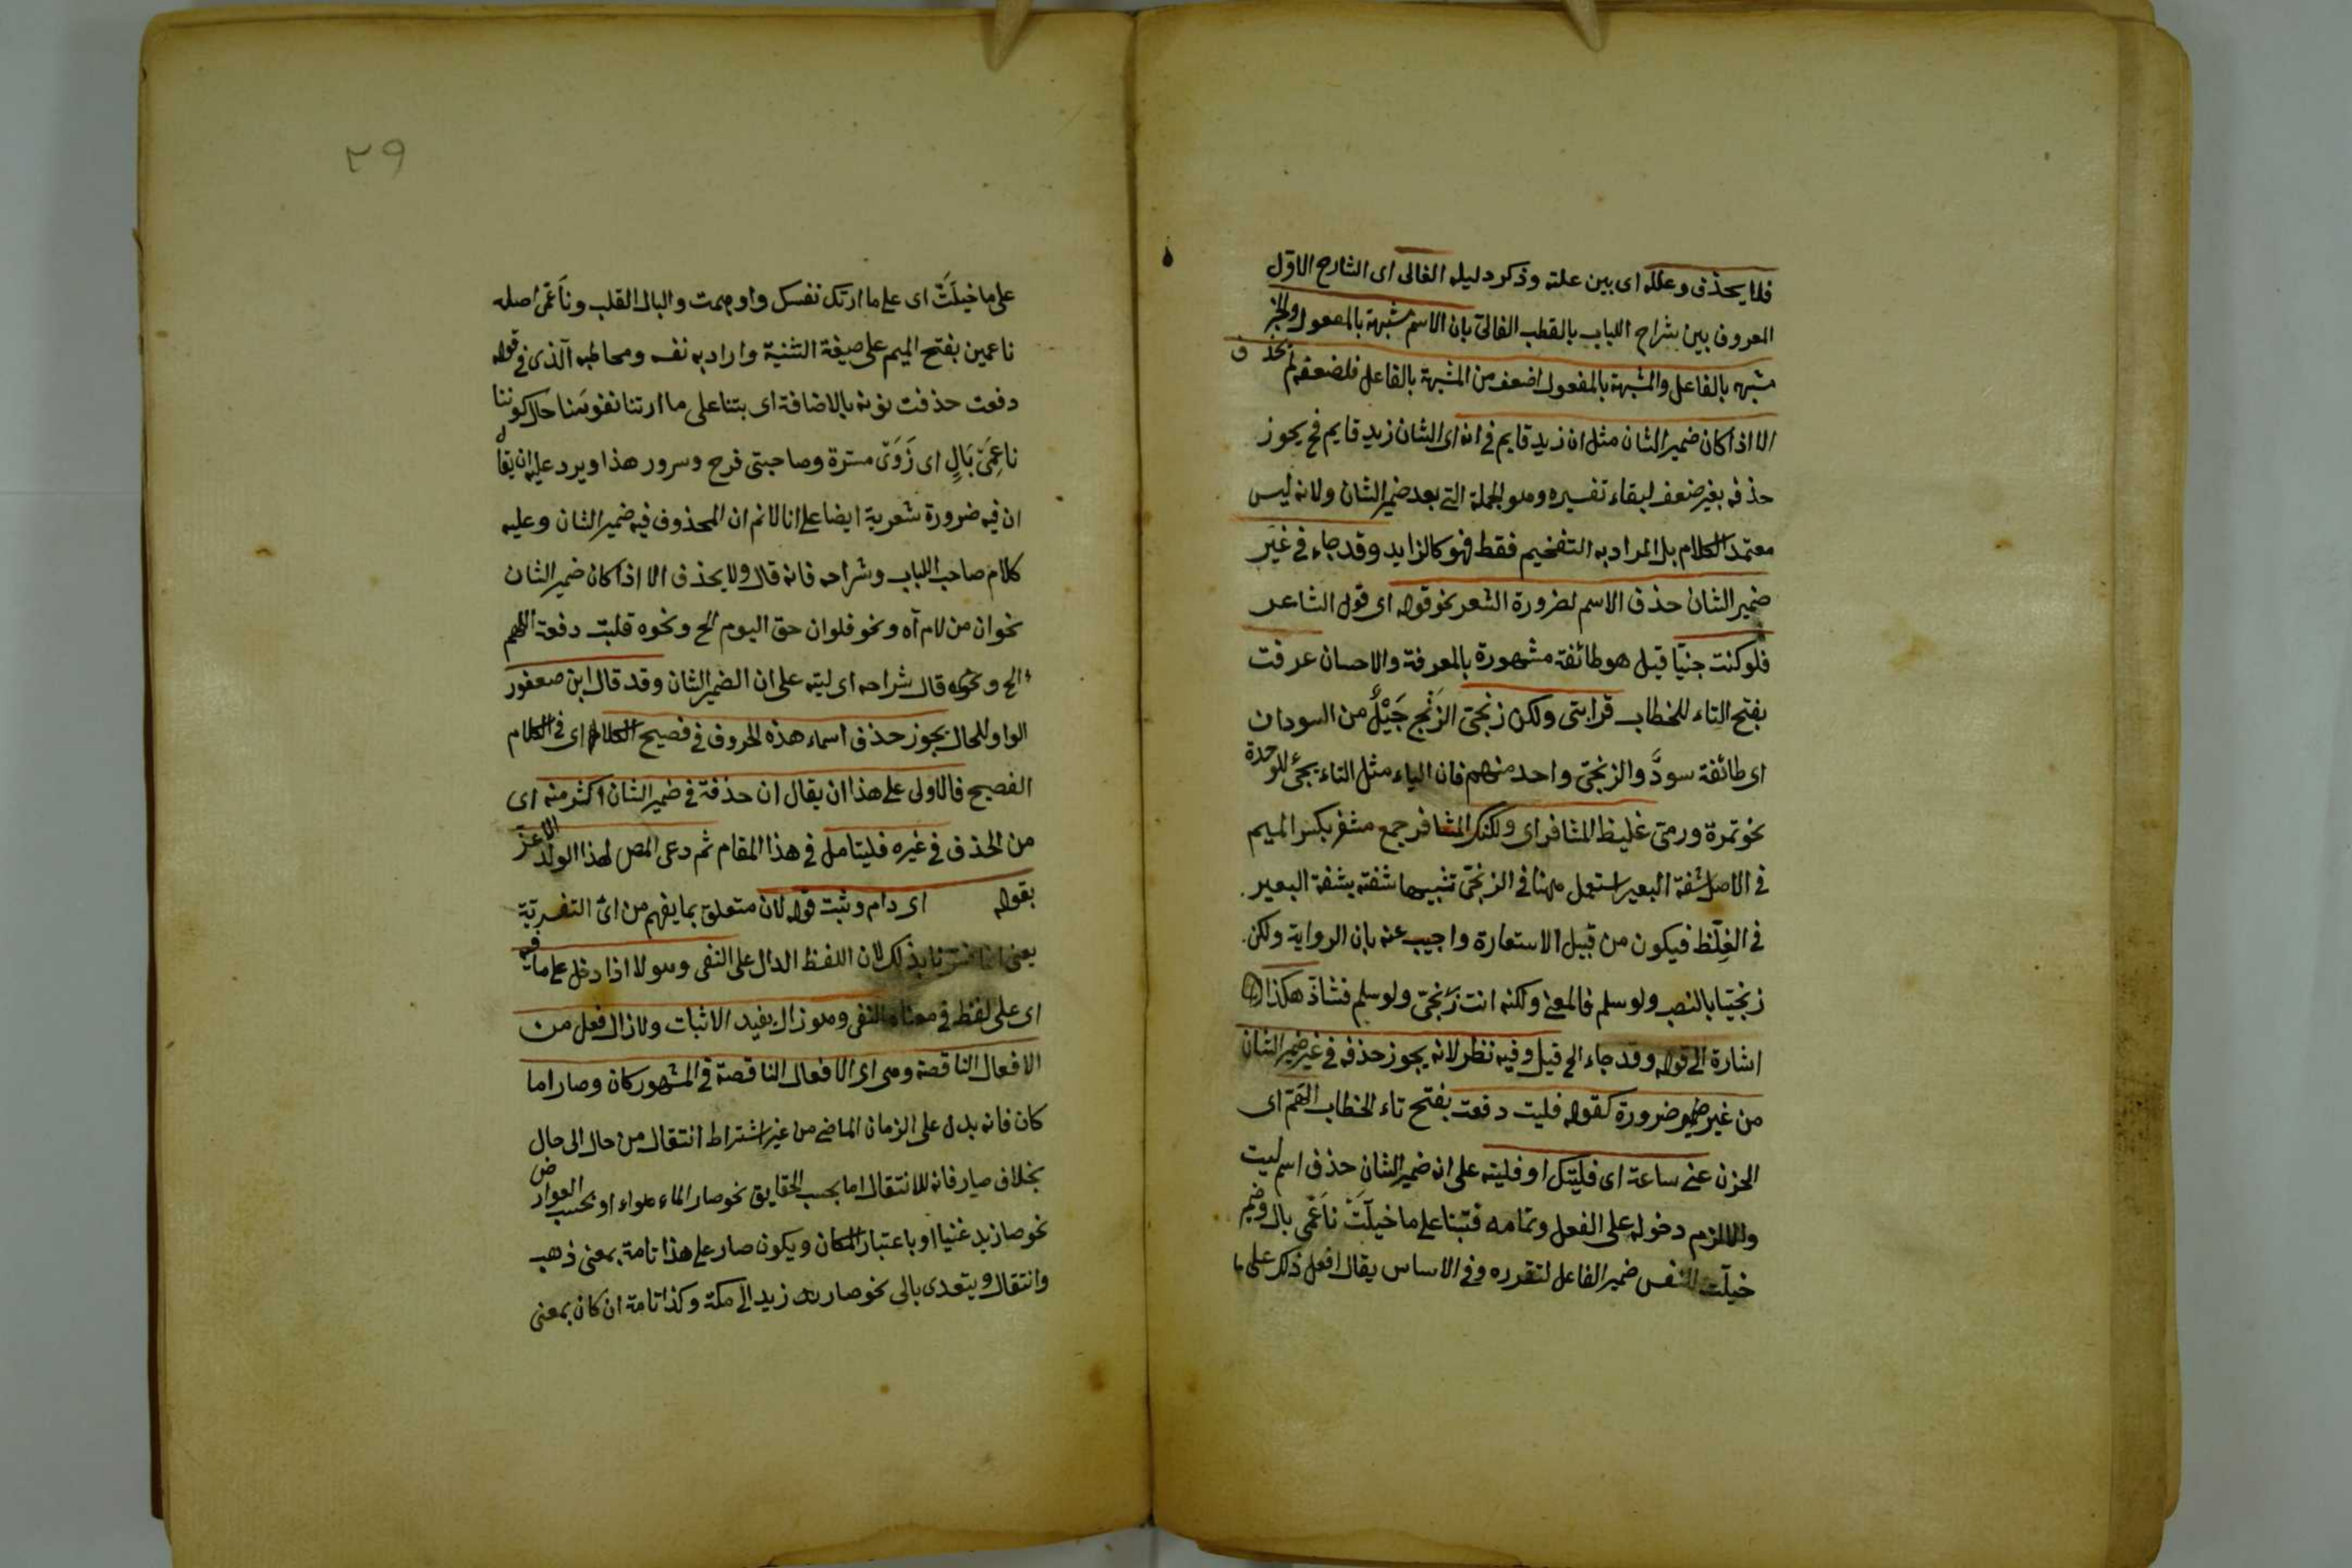 فلا يحذف وعلله اى بين علته وذكر دليله الفالى اى الشارح الاول
المعروف بين شراح اللباب بالقطب الفالىّ بان الاسم مشبهة بالمفعول والخبر
مشبه بالفاعل والمشبهة بالمفعول اضعف من المشبهة بالفاعل فلضعفه لم يحذف
الا اذا كان ضمير الشان مثل ان زيد قايم فى انه اى الشان زيد قايم فح يجوز
حذفه بغير ضعف لبقاء تفسيره وهو الجملة التى بعد ضمير الشان ولانه ليس
معتمد الكلام بل المراد به التفخيم فقط فهو كالزايد وقد جاء فى غير
ضمير الشان حذف الاسم لضرورة الشعر نحو قوله اى قول الشاعر
فلو كنت جنيّا قيل هو طائفة مشهورة بالمعرفة والاحسان عرفت
بفتح التاء للخطاب قرابتى ولكن زنجىّ الزَنْج جَيْلٌ من السودان
اى طائفة سودٌ والزنجىّ واحد منهم فان الياء مثل التاء يجئ للوحدة
نحو تمرة ورمى غليظ المشافر اى ولكنك المشافر جمع مشفر بكسر الميم
فى الاصل شفة البعير استعمل ههنا فى الزنجىّ تشبيها شفته بشفة البعير
فى الغِلَظ فيكون من قبيل الاستعارة واجيب عنه بان الرواية ولكن
زنجيّا بالنصب ولو سلم فالمعنى ولكنه انت زنجىّ ولو سلم فشاذّ هكذا
اشارة الى قوله وقد جاء الى قيل وفيه نظر لانه يجوز حذفه فى غير ضمير الشان
من غير ضرورة كقوله فليت دفعت بفتح تاء الخطاب الهَمّ اى
الحزن عنى ساعة اى فليتك او فليته على ان ضمير الشان حذف اسم ليت
والا لزم دخوله على الفعل وتمامه فبتنا على ما خيلَتْ ناعمى بال وضمير
خيلّت للنفس ضمير الفاعل لتقرره وفى الاساس يقال افعل ذلك على ما
٢٩
على ما خيلَتْ اى على ما ارتك نفسك واوهمت والبال القلب وناعمى اصله
ناعمين بفتح الميم على صيغة التثنية واراد به نفسه ومخاطبه الذى فى قوله
دفعت حذفت نونه بالاضافة اى بتنا على ما ارتنا نفوسنا حال كوننا
ناعِمَىْ بَالٍ اى ذَوَىْ مسترة وصاحبتى فرح وسرور هذا ويرد عليه ان يقال
ان فيه ضرورة شعرية ايضا على انا لانم ان المحذوف فيه ضمير الشان وعليه
كلام صاحب اللباب وشراحه فانه قال ولا يحذف الا اذا كان ضمير الشان
نحو ان من لام آه ونحو فلو ان حق اليوم الخ ونحوه فليت دفعة الهم
الخ ونحوه قال شراحه اى ليته على ان الضمير الشان وقد قال ابن صعفور
الواو للحال يجوز حذف اسماء هذه الحروف فى فصيح الكلام اى فى الكلام
الفصيح فالاولى على هذا ان يقال ان حذفة فى ضمير الشان اكثر منه اى
من الحذف فى غيره فليتامل فى هذا المقام ثم دعى المص لهذا الولد الاعز
بقوله اى دام وثبت قوله لان متعلق بما يفهم من اى التفسريّة
يعنى انا فسرنا بذلك لان اللفظ الدال على النفى وهو لا اذا دخل على ما فيه
اى على لفظ فى معناه النفى وهو زال يفيد الاثبات ولا زال فعل من
الافعال الناقصة وهى اى الافعال الناقصة فى المشهور كان وصار اما
كان فانه يدل على الزمان الماضى من غير اشتراط انتقال من حال الى حال
بخلاف صار فانه للانتقال اما بحسب الحقايق نحو صار الماء هواء او بحسب العوارض
نحو صار زيد غنيا او باعتبار المكان ويكون صار على هذا تامة بمعنى ذهب
وانتقال ويتعدى بالى نحو صار زيد الى مكة وكذا تامة ان كان بمعنى